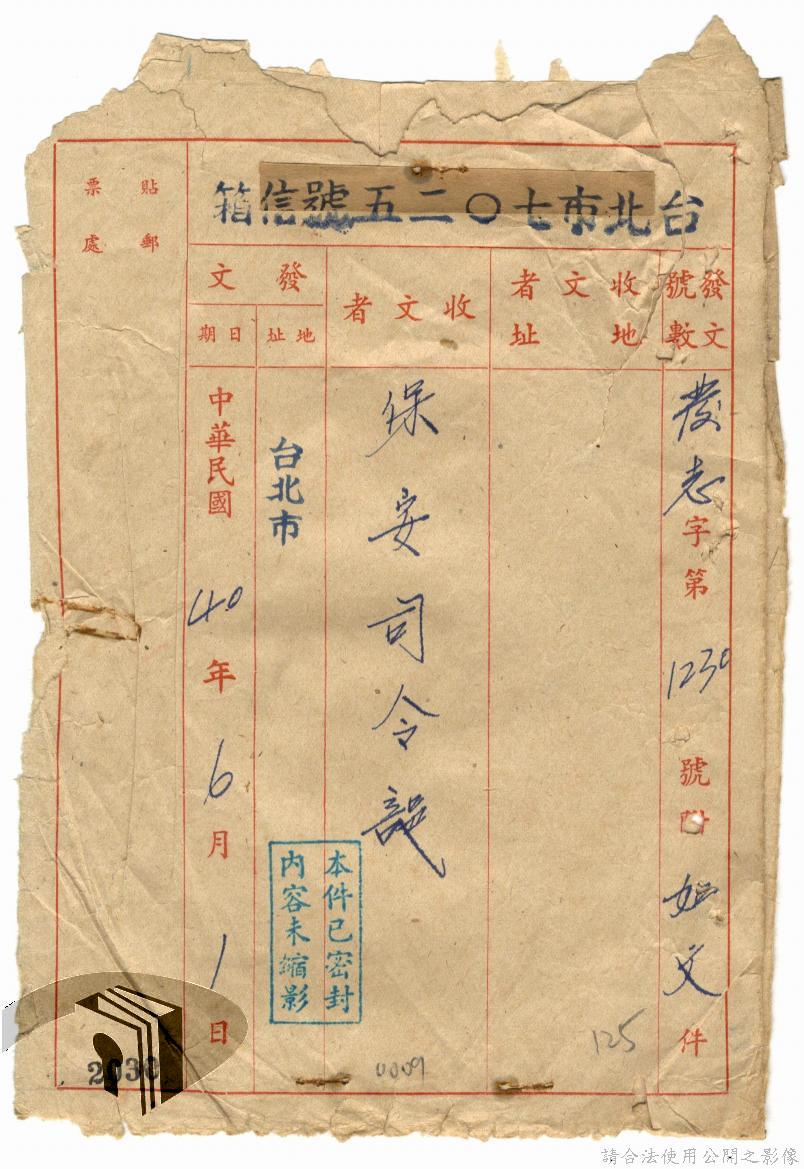 台北市七〇二五號信箱
貼郵
票處
發文
號數
發志字第1230號附如文件
收文者
地址
收文者
保安司令部
發文
地址
台北市
日期
中華民國40年6月1日
本件已密封
內容未縮影
125
0009
2030
請合法使用公開之影像